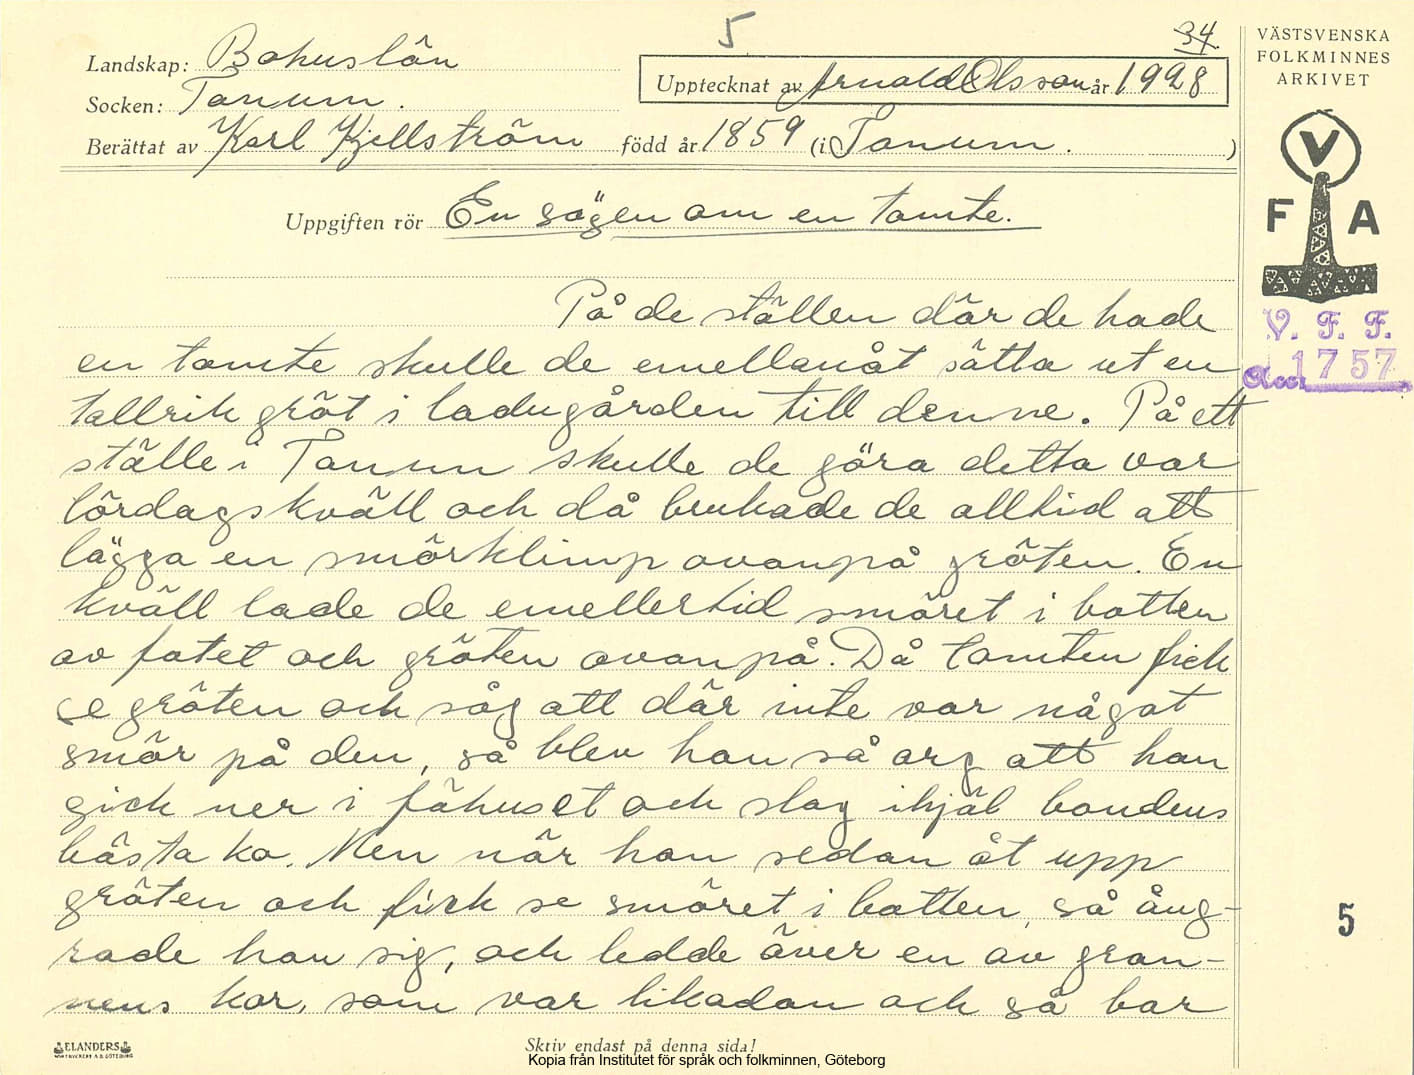 5
34.
Landskap: Bohuslän
Upptecknat av Arnold Olsson år 1928
Socken: Tanum.
Berättat av Karl Kjellström född år 1859 (i Tanum. )
Uppgiften rör En sägen om en tomte.
På de ställen där de hade
en tomte skulle de emellanåt sätta ut en
tallrik gröt i ladugården till denne. På ett
ställe i Tanum skulle de göra detta var
lördagskväll och då brukade de alltid att
lägga en smörklimp ovanpå gröten. En
kväll lade de emellertid smöret i botten
av fatet och gröten ovanpå. Då tomten fick
se gröten och såg att där inte var något
smör på den, så blev han så arg att han
gick ner i fähuset och slog ihjäl bondens
bästa ko. Men när han sedan åt upp
gröten och fick se smöret i botten, så ång-
rade han sig, och ledde över en av gran-
nens kor, som var likadan och så bar
Skriv endast på denna sida!
ELANDERS
BOKTRYCKERI A.B. GÖTEBORG
VÄSTSVENSKA
FOLKMINNES
ARKIVET
V
F A
V. F. F.
Acc. 1757
5
Kopia från Institutet för språk och folkminnen, Göteborg